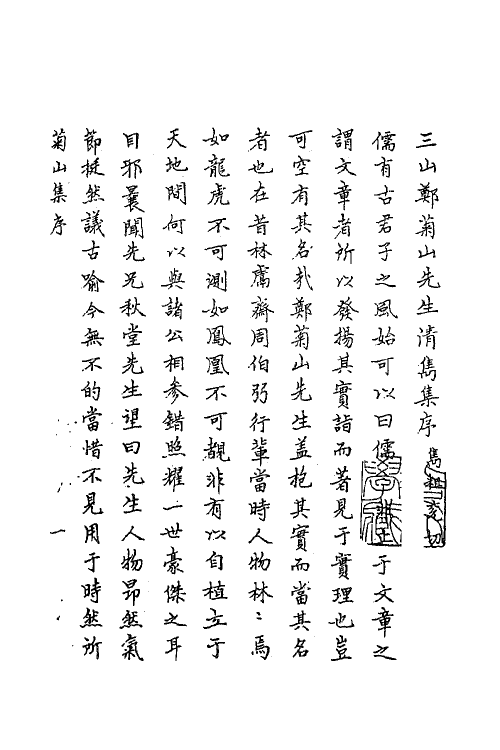 三山鄭菊山先生清雋集序 雋租兗切
儒有古君子之風始可以曰儒 于文章之
謂文章者所以發揚其實詣而著見于實理也豈
可空有其名哉鄭菊山先生盖抱其實而當其名
者也在昔林鬳齋周伯弜行輩當時人物林〻焉
如龍虎不可測如鳳凰不可覩非有以自植立于
天地間何以與諸公相參錯照耀一世豪傑之耳
目邪曩聞先兄秋堂先生望曰先生人物昂然氣
節挺然議古喻今無不的當惜不見用于時然所
菊山集序
一